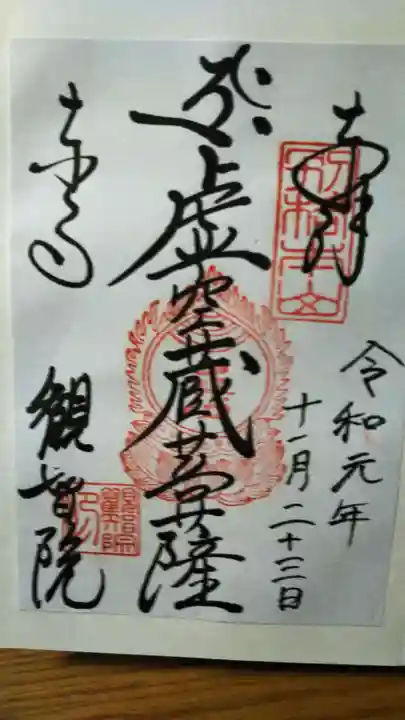 奉拝
令和元年
十一月二十三日
虚空蔵菩薩
東寺
観智院